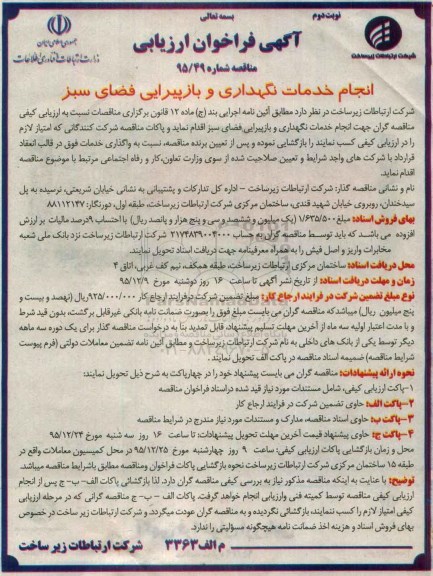 بسمه تعالی
نوبت دوم
جمهوری اسلامی ایران
وزارت ارتباطات و فناوری اطلاعات
شرکت ارتباطات زیرساخت
آگهی فراخوان ارزیابی
مناقصه شماره ۹۵/۴۹
انجام خدمات نگهداری و بازپیرایی فضای سبز
شرکت ارتباطات زیرساخت در نظر دارد مطابق آئین نامه اجرایی بند (ج) ماده ۱۲ قانون برگزاری مناقصات نسبت به ارزیابی کیفی
مناقصه گران جهت انجام خدمات نگهداری و بازپیرایی فضای سبز اقدام نماید و پاکات مناقصه شرکت کنندگانی که امتیاز لازم
را در ارزیابی کیفی کسب نمایند را بازگشایی نموده و پس از تعیین برنده مناقصه، نسبت به واگذاری خدمات فوق در قالب انعقاد
قرارداد با شرکت های واجد شرایط و تعیین صلاحیت شده از سوی وزارت تعاون، کار و رفاه اجتماعی مرتبط با موضوع مناقصه
اقدام نماید.
نام و نشانی مناقصه گذار: شرکت ارتباطات زیرساخت - اداره کل تدارکات و پشتیبانی به نشانی خیابان شریعتی، نرسیده به پل
سیدخندان، روبروی خیابان شهید قندی، ساختمان مرکزی شرکت ارتباطات زیرساخت، طبقه اول، دورنگار: ۸۸۱۱۲۱۴۷
بهای فروش اسناد: مبلغ ۱/۶۳۵/۵۰۰ (یک میلیون و ششصد و سی و پنج هزار و پانصد ریال) با احتساب ۹ درصد مالیات بر ارزش
افزوده می باشد که باید توسط مناقصه گران به حساب ۲۱۷۴۸۳۹۰۰۴۰۰۰ شرکت ارتباطات زیرساخت نزد بانک ملی شعبه
مخابرات واریز و اصل فیش را به همراه معرفینامه جهت دریافت اسناد تحویل نمایند.
محل دریافت اسناد: ساختمان مرکزی ارتباطات زیرساخت، طبقه همکف، نیم کف غربی، اتاق ۴
زمان و مهلت دریافت اسناد: از تاریخ نشر آگهی تا ساعت ۱۶ روز دوشنبه مورخ ۹۵/۱۲/۹
نوع مبلغ تضمین شرکت در فرایند ارجاع کار: مبلغ تضمین شرکت در فرایند ارجاع کار ۹۲۵/۰۰۰/۰۰۰ ریال (نهصد و بیست و
پنج میلیون ریال) میباشد که مناقصه گران می بایست مبلغ فوق را بصورت ضمانت نامه بانکی غیرقابل برگشت، بدون قید شرط
و با مدت اعتبار اولیه سه ماه از آخرین مهلت تسلیم پیشنهاد، قابل تمدید بنا به درخواست مناقصه گذار برای یک دوره سه ماهه
دیگر توسط یکی از بانک های داخلی به نام شرکت ارتباطات زیرساخت و مطابق آئین نامه تضمین معاملات دولتی (فرم پیوست
شرایط مناقصه) ضمیمه اسناد مناقصه در پاکت الف تحویل نمایند.
نحوه ارائه پیشنهادات: مناقصه گران می بایست پیشنهاد خود را در چهار پاکت به شرح ذیل تحویل نمایند:
۱-پاکت ارزیابی کیفی، شامل مستندات مورد نیاز قید شده در اسناد فراخوان مناقصه
۲-پاکت الف: حاوی تضمین شرکت در فرایند ارجاع کار
۳-پاکت ب: حاوی اسناد مناقصه، مدارک و مستندات مورد نیاز مندرج در شرایط مناقصه
۴-پاکت ج: حاوی پیشنهاد قیمت آخرین مهلت تحویل پیشنهادات: تا ساعت ۱۶ روز سه شنبه مورخ ۹۵/۱۲/۲۴
محل و زمان بازگشایی پاکات ارزیابی کیفی: ساعت ۹ روز چهارشنبه مورخ ۹۵/۱۲/۲۵ در محل کمیسیون معاملات واقع در
طبقه ۱۵ ساختمان مرکزی شرکت ارتباطات زیرساخت نحوه بازگشایی پاکات فراخوان ومناقصه مطابق باشرایط مناقصه میباشد.
توضیح: با عنایت به اینکه مناقصه مذکور نیاز به بررسی کیفی مناقصه گران دارد، لذا بازگشائی پاکات الف - ب - ج پس از انجام
ارزیابی کیفی مناقصه توسط کمیته فنی وارزیابی انجام خواهد گرفت، پاکات الف - ب - ج مناقصه گرانی که در مرحله ارزیابی
کیفی امتیاز لازم را کسب ننمایند، بازگشائی نگردیده و به مناقصه گران عودت میگردد، و شرکت ارتباطات زیر ساخت در خصوص
بهای فروش اسناد و هزینه اخذ ضمانت نامه هیچگونه مسؤلیتی را ندارد.
م الف ۳۳۶۳ شرکت ارتباطات زیر ساخت